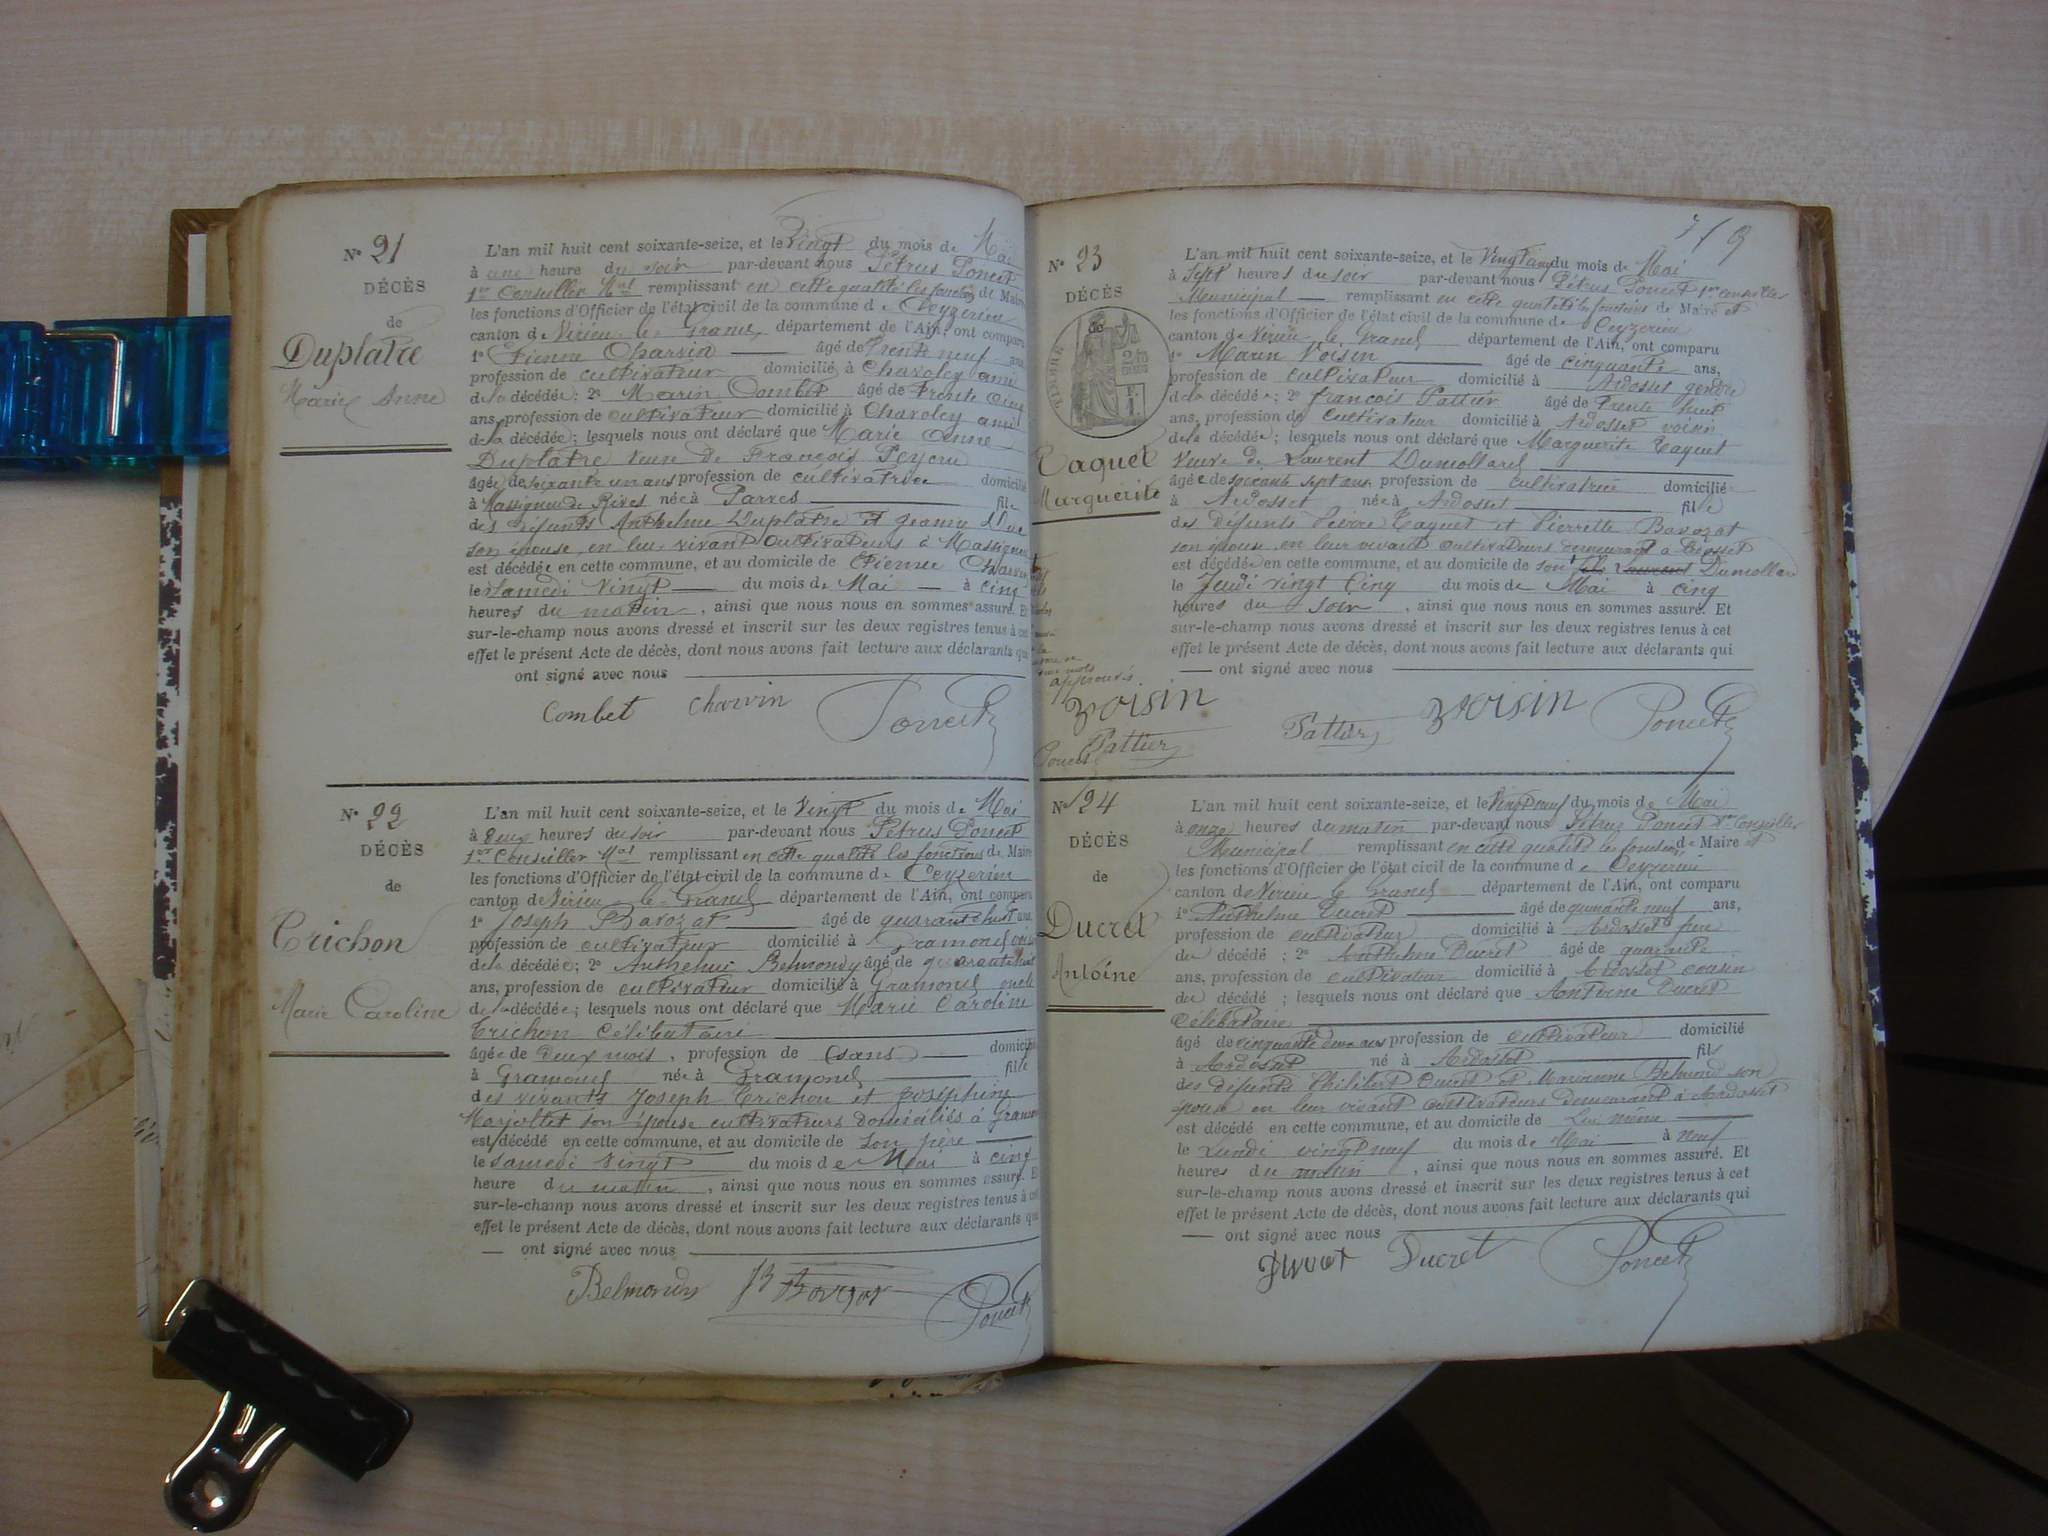 N° 21
DÉCÈS
de
Duplatre
Marie Anne
L'an mil huit cent soixante-seize, et le Vingt du mois de Mai
à une heure du soir par-devant nous Pétrus Poncet
1er Conseiller Mal remplissant en cette qualité les fonctions de Maire
les fonctions d'Officier de l'état civil de la commune de Ceyzerieu
canton de Virieu-le-Grand, département de l'Ain, ont comparu
1° Etienne Charvin âgé de Trente neuf ans
profession de cultivateur domicilié à Chavoley ami
de la décédée; 2° Marin Combet âgé de Trente cinq
ans, profession de cultivateur domicilié à Chavoley ami
de la décédée; lesquels nous ont déclaré que Marie Anne
Duplatre veuve de François
âgée de soixante un ans profession de cultivatrice domiciliée
à Massignieu de Rives née à Parves fille
des défunts Anthelme Duplatre et Jeanne
son épouse, en leur vivant cultivateurs à Massignieu
est décédée en cette commune, et au domicile de Etienne Charvin
le Samedi Vingt du mois de Mai à cinq
heures du matin, ainsi que nous nous en sommes assuré. Et
sur-le-champ nous avons dressé et inscrit sur les deux registres tenus à cet
effet le présent Acte de décès, dont nous avons fait lecture aux déclarants qui
ont signé avec nous
Combet Charvin Poncet
N° 22
DÉCÈS
de
Trichon
Marie Caroline
L'an mil huit cent soixante-seize, et le Vingt du mois de Mai
à deux heures du soir par-devant nous Pétrus Poncet
1er Conseiller Mal remplissant en cette qualité les fonctions de Maire
les fonctions d'Officier de l'état civil de la commune de Ceyzerieu
canton de Virieu le-Grand département de l'Ain, ont comparu
1° Joseph Bavozat âgé de quarante huit ans
profession de cultivateur domicilié à Gramond voisin
de la décédée; 2° Anthelme Belmondy âgé de quarante huit
ans, profession de cultivateur domicilié à Gramond oncle
de la décédée; lesquels nous ont déclaré que Marie Caroline
Trichon célibataire
âgée de deux mois, profession de (sans) domiciliée
à Gramond née à Gramond fille
des vivants Joseph Trichon et Joséphine
Marjollet son épouse cultivateurs domiciliés à Gramond
est décédé en cette commune, et au domicile de son père
le samedi Vingt du mois de Mai à cinq
heure du matin, ainsi que nous nous en sommes assuré. Et
sur-le-champ nous avons dressé et inscrit sur les deux registres tenus à cet
effet le présent Acte de décès, dont nous avons fait lecture aux déclarants qui
ont signé avec nous
Belmondy Poncet
N° 23
DÉCÈS
de
TIMBRE
Taquet
Marguerite
L'an mil huit cent soixante-seize, et le Vingt cinq du mois de Mai
à Sept heures du soir par-devant nous Pétrus Poncet 1er conseiller
Municipal remplissant en cette qualité les fonctions de Maire et
les fonctions d'Officier de l'état civil de la commune de Ceyzerieu
canton de Virieu le Grand département de l'Ain, ont comparu
1° Marin Voisin âgé de cinquante ans,
profession de cultivateur domicilié à Ardosset gendre
de la décédée; 2° François Pattier âgé de Trente huit
ans, profession de cultivateur domicilié à Ardosset voisin
de la décédée; lesquels nous ont déclaré que Marguerite Taquet
veuve de Laurent Dumollard
âgée de soixante sept ans profession de cultivatrice domiciliée
à Ardosset née à Ardosset fille
des défunts Pierre Taquet et Pierrette Bavozat
son épouse, en leur vivant cultivateurs demeurant à Ardosset
est décédée en cette commune, et au domicile de son Dumollard
le Jeudi vingt Cinq du mois de Mai à cinq
heures du soir, ainsi que nous nous en sommes assuré. Et
sur-le-champ nous avons dressé et inscrit sur les deux registres tenus à cet
effet le présent Acte de décès, dont nous avons fait lecture aux déclarants qui
ont signé avec nous
approuvés
Voisin
Pattier
Poncet
Pattier Voisin Poncet
N° 24
DÉCÈS
de
Ducret
Antoine
L'an mil huit cent soixante-seize, et le Vingt neuf du mois de Mai
à onze heures du matin par-devant nous Pétrus Poncet 1er Conseiller
Municipal remplissant en cette qualité les fonctions de Maire et
les fonctions d'Officier de l'état civil de la commune de Ceyzerieu
canton de Virieu le Grand département de l'Ain, ont comparu
1° Anthelme Ducret âgé de quarante neuf ans,
profession de cultivateur domicilié à Ardosset frère
du décédé; 2° Anthelme Ducret âgé de quarante
ans, profession de cultivateur domicilié à Ardosset cousin
du décédé; lesquels nous ont déclaré que Antoine Ducret
célibataire
âgé de cinquante deux ans profession de cultivateur domicilié
à Ardosset né à Ardosset fils
des défunts Philibert Ducret et Marianne Belmond son
épouse en leur vivant cultivateurs demeurant à Ardosset
est décédé en cette commune, et au domicile de Lui même
le Lundi vingt neuf du mois de Mai à neuf
heures du matin, ainsi que nous nous en sommes assuré. Et
sur-le-champ nous avons dressé et inscrit sur les deux registres tenus à cet
effet le présent Acte de décès, dont nous avons fait lecture aux déclarants qui
ont signé avec nous
Ducret Poncet